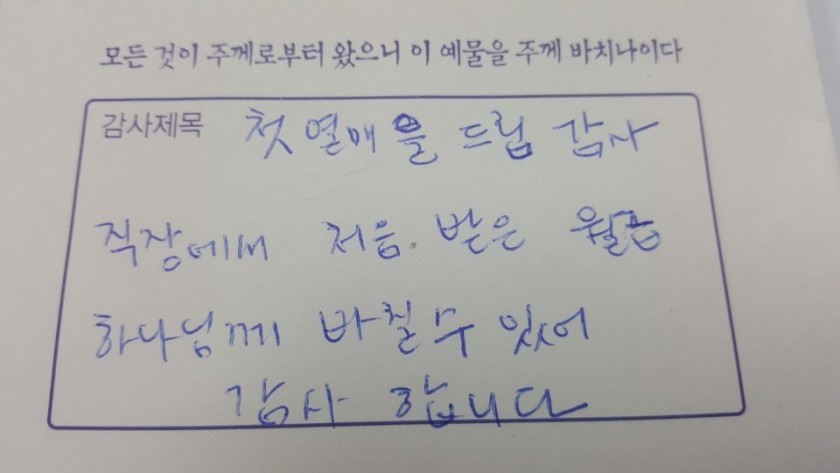 모든 것이 주께로부터 왔으니 이 예물을 주께 바치나이다
감사제목 첫 열매을 드림 감사
직장에서 처음 받은 월급
하나님께 바칠수 있어
감사 합니다